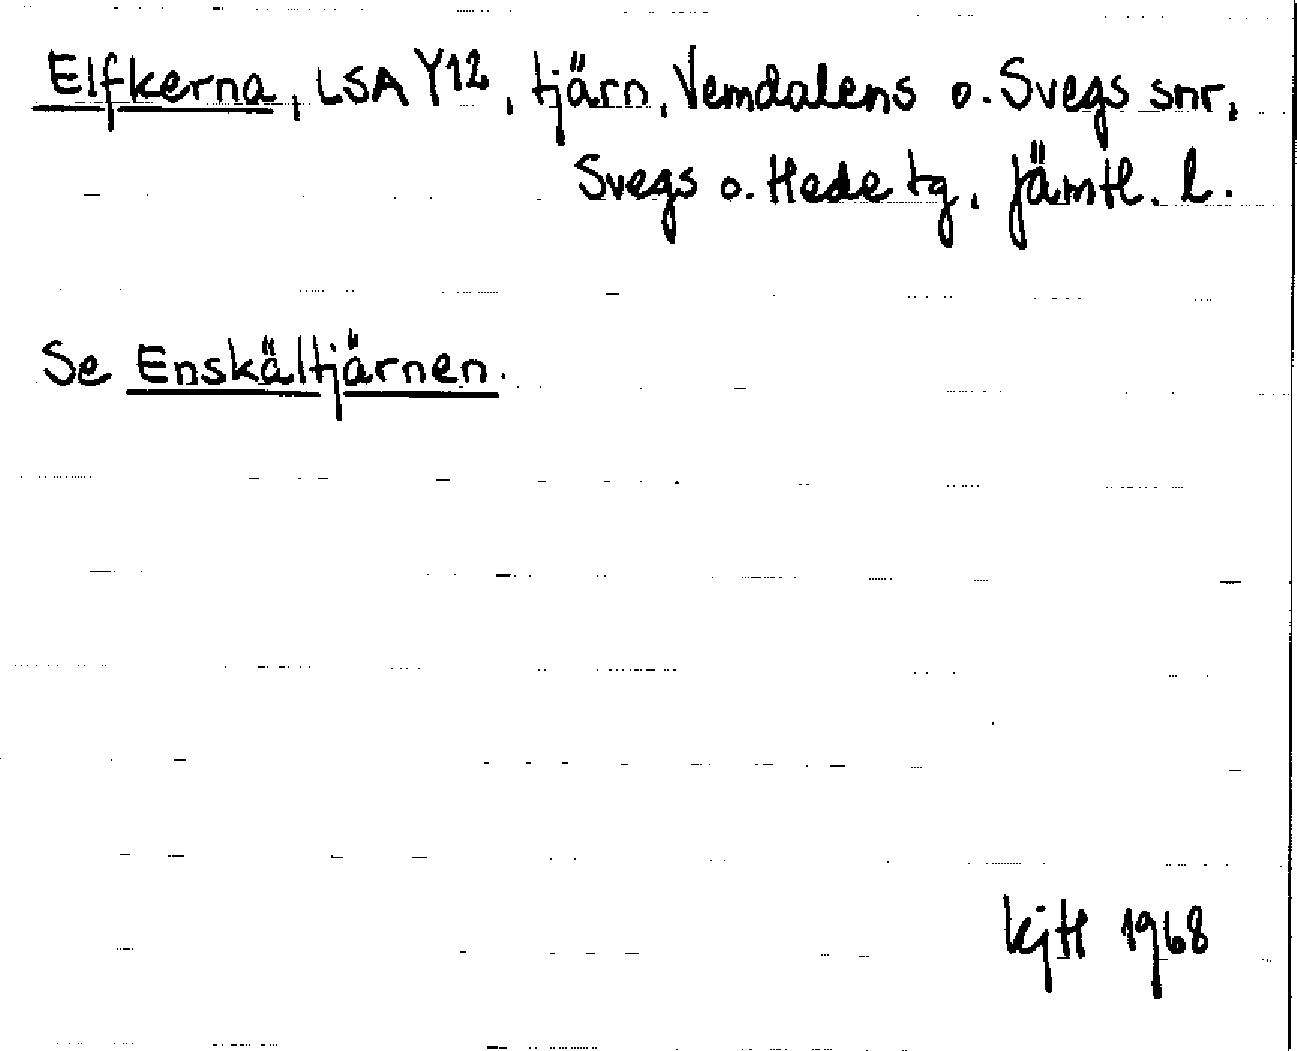 Elfkerna, LSA Y12, tjärn, Vemdalens o. Svegs snr,
Svegs o. Hede tg, Jämtl. l.
Se Enskältjärnen.
1968